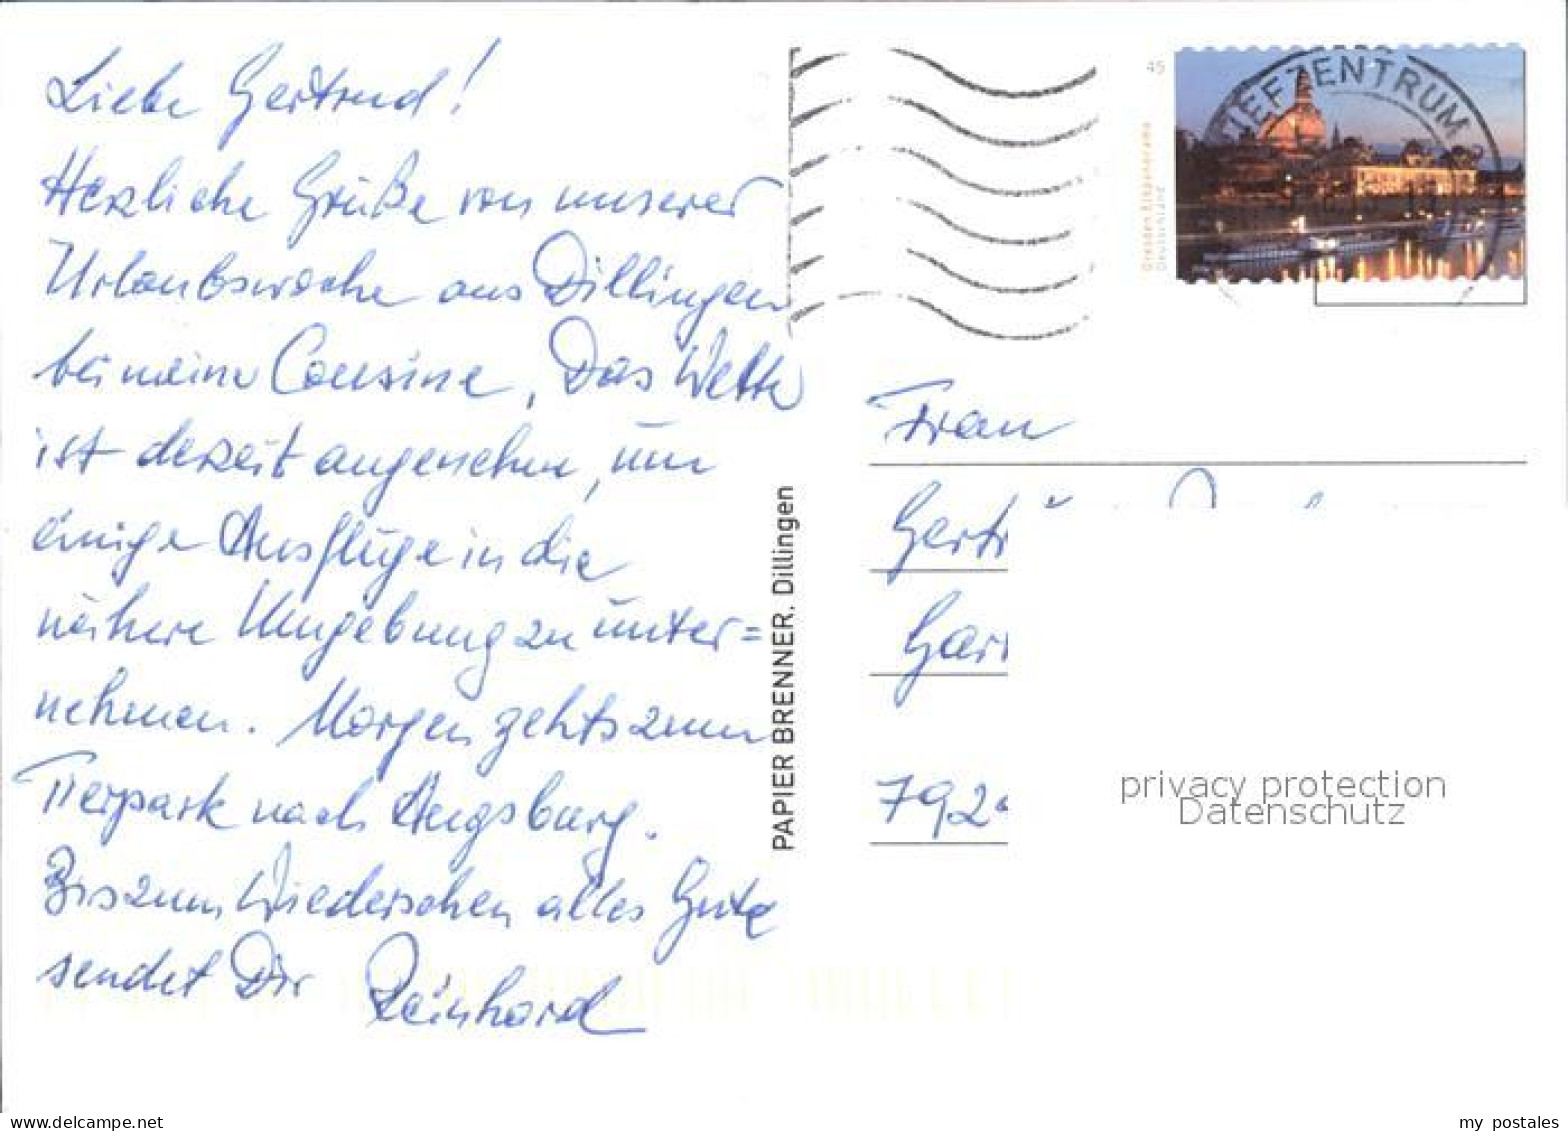 Liebe Gertrud!
Herzliche Grüße von unserer
Urlaubswoche aus Dillingen
bei meine Cousine, Das Wetter
ist derzeit angenehm, um
einige Ausflüge in die
nähere Umgebung zu unter=
nehmen. Morgen gehts zum
Tierpark nach Augsburg.
Bis zum Wiedersehen alles Gute
sendet Dir Reinhard
PAPIER BRENNER. Dillingen
45
Dresden Elbpanorama
Deutschland
IEFZENTRUM
Frau
Gertr
Gar
792
privacy protection
Datenschutz
www.delcampe.net
my_postales